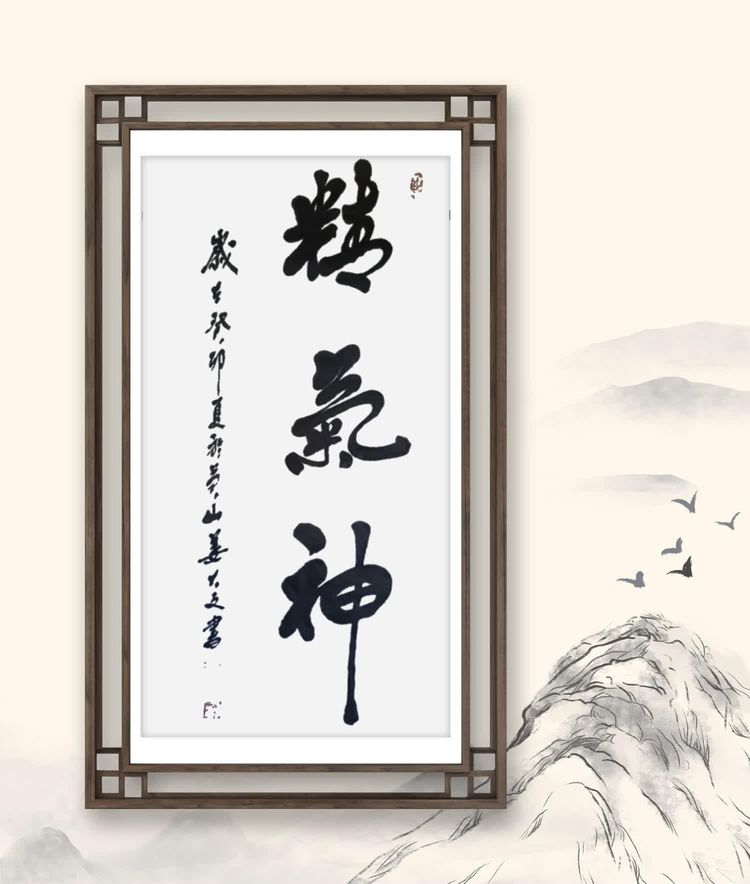 精氣神
歲在癸卯夏於萊山姜大文書